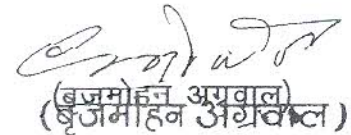 (बृजमोहन अग्रवाल)
(बृजमोहन अग्रवाल)